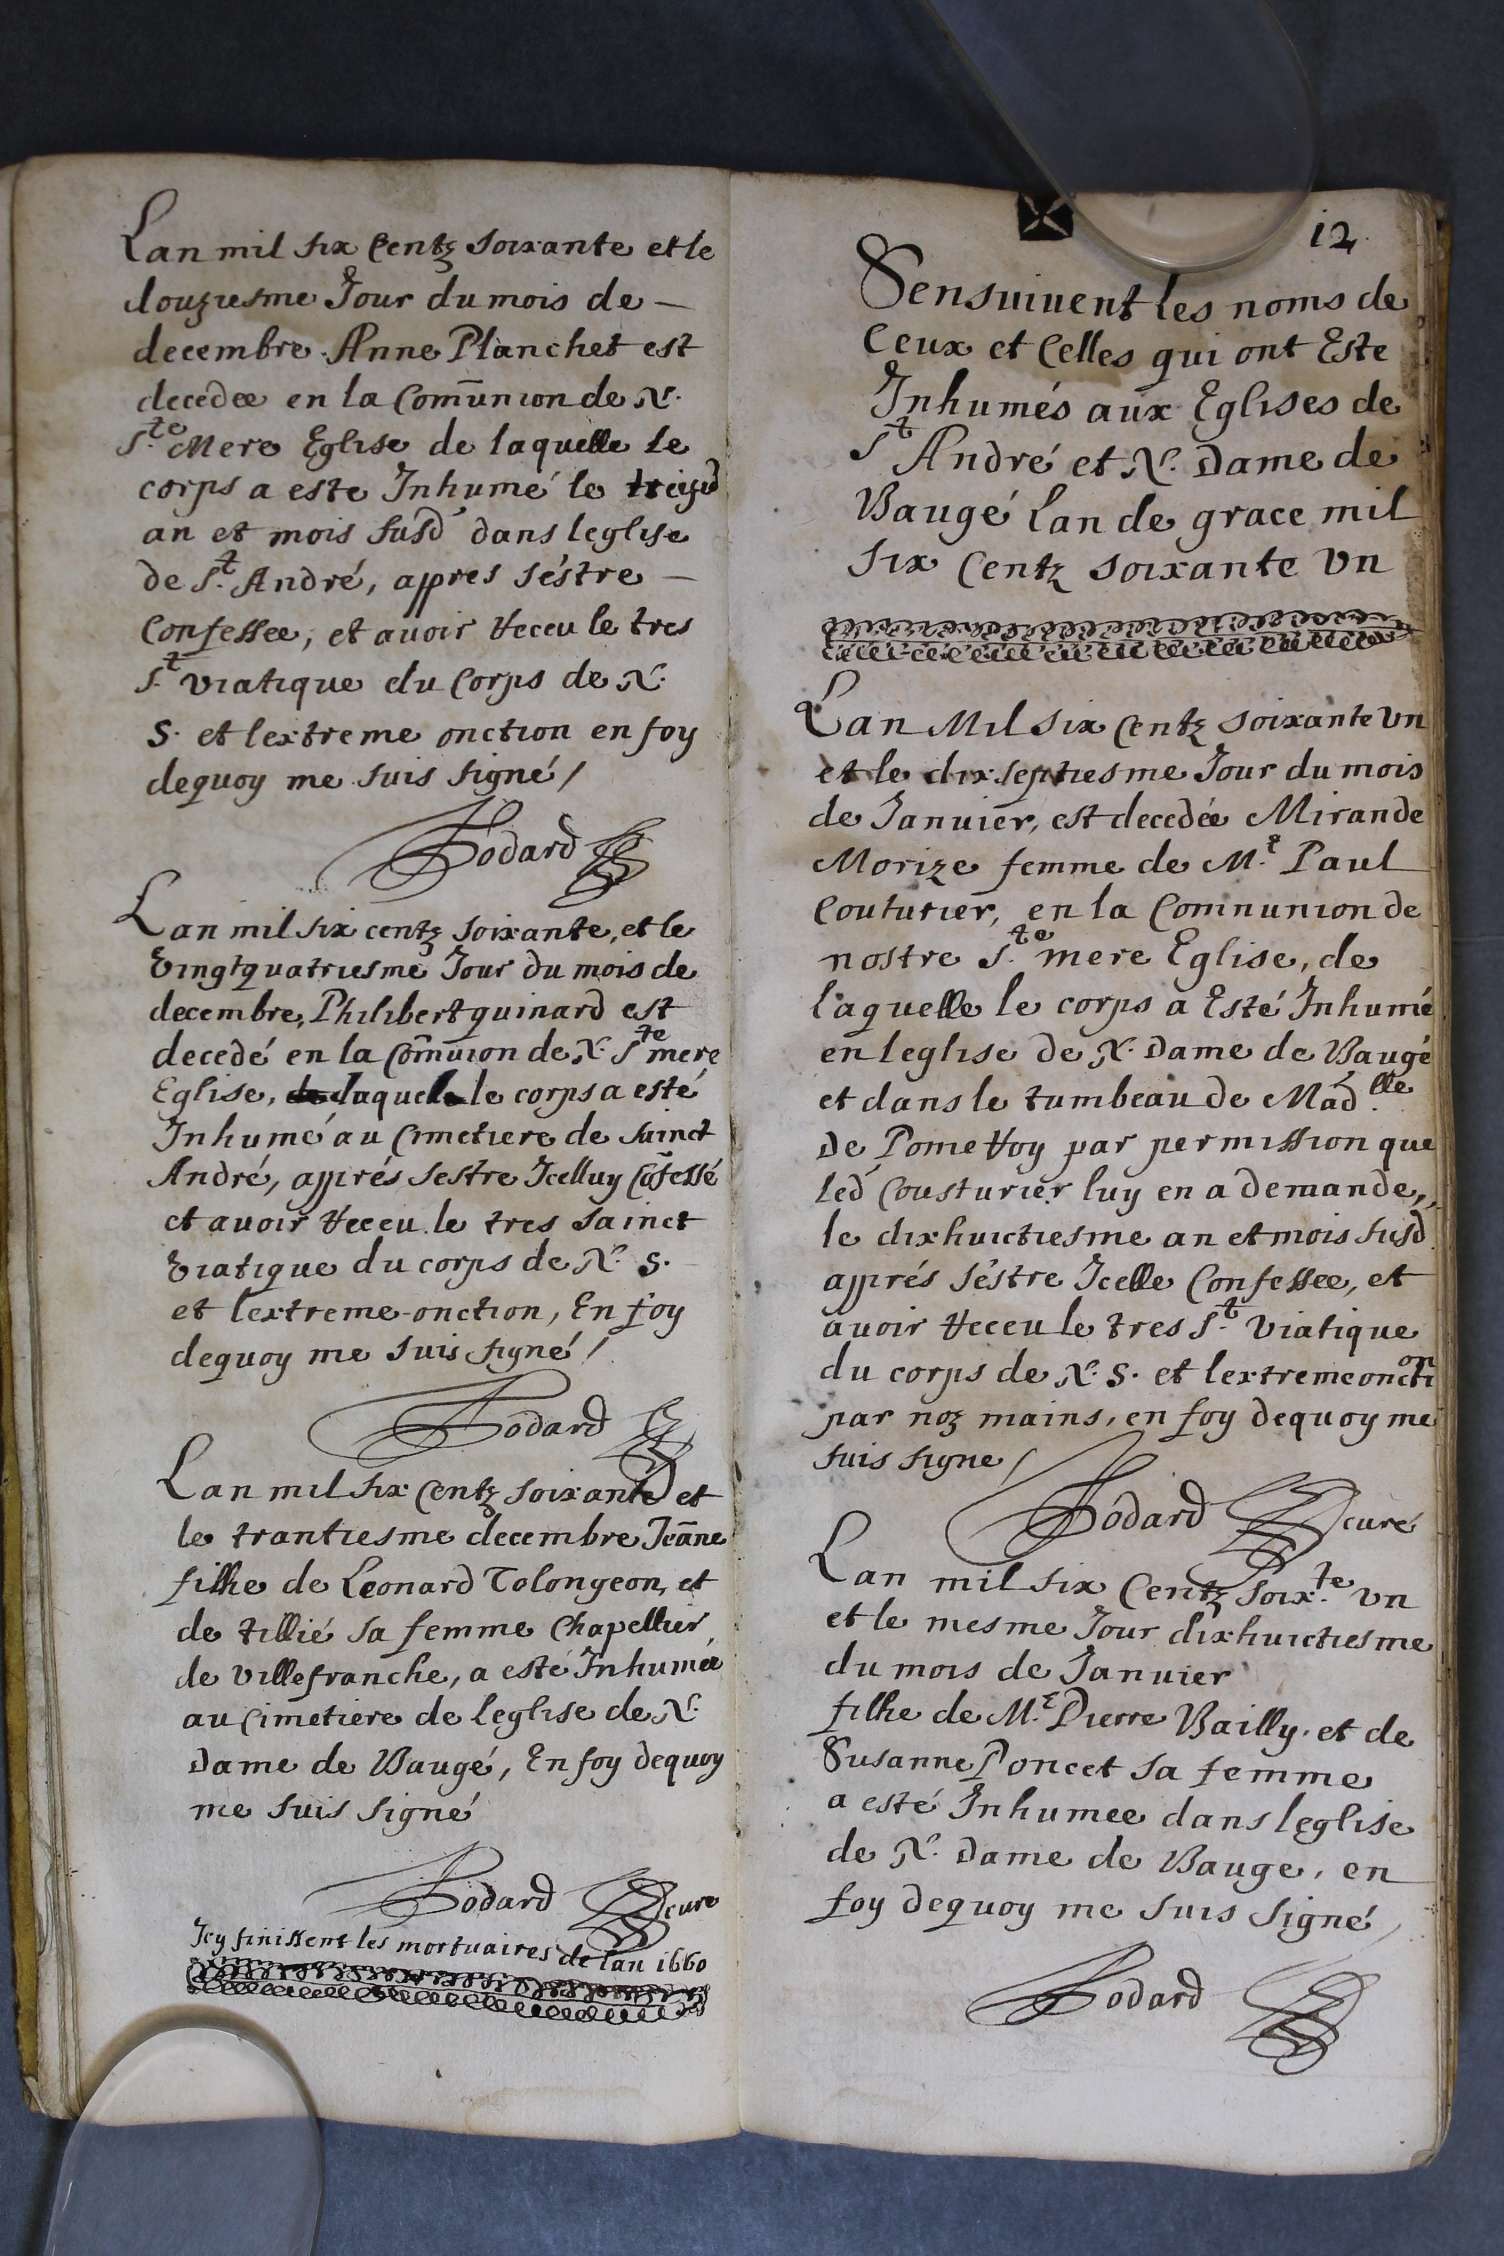 Lan mil six Centz soixante et le
douziesme Jour du mois de —
decembre Anne Planchet est
decedee en la Com̄union de N.
S.te Mere Eglise de laquelle le
corps a este Inhumé le treizie
an et mois susd dans leglise
de S.t André, appres séstre —
Confessee, et avoir Receu le tres
S.t viatique du Corps de N.
S. et lextreme onction en foy
dequoy me suis signé /
Bodard
Lan mil six centz soixante, et le
Vingtquatriesme Jour du mois de
decembre, Philibert guinard est
decedé en la Com̄uion de N. S.te mere
Eglise, de laquelle le corps a esté
Inhumé au Cimetiere de sainct
André, apprés sestre Icelluy Cōfessé
et avoir Receu le tres sainct
Viatique du corps de N. S.
et lextreme-onction, En foy
dequoy me suis signé /
Bodard
Lan mil six Centz soixante et
le trantiesme decembre Jeāne
filhe de Leonard Tolongeon, et
de tillié sa femme Chapellier
de villefranche, a esté Inhumeé
au Cimetiere de Leglise de N.
Dame de Baugé, En foy dequoy
me suis signé
Bodard curé
Icy finissent les mortuaires de lan 1660
12
Sensuivent les noms de
Ceux et Celles qui ont Este
Inhumés aux Eglises de
S.t André et N. Dame de
Baugé Lan de grace mil
six Centz soixante Un
Lan Mil six Centz soixante Un
et le dixseptiesme Jour du mois
de Januier, est decedée Mirande
Morize femme de M.e Paul
Couturier, en la Communion de
nostre S.te mere Eglise, de
laquelle le corps a Esté Inhumé
en leglise de N. Dame de Baugé
et dans le tumbeau de Mad.lle
De Pome Roy par permission que
led Cousturier luy en a demande,
le dixhuictiesme an et mois susd
apprés séstre Icelle Confessee, et
avoir Receu le tres S.t Viatique
du corps de N. S. et lextreme onction
par noz mains, en foy dequoy me
suis signe /
Bodard curé
Lan mil six Centz soix.te Un
et le mesme Jour dixhuictiesme
du mois de Januier
filhe de M.e Pierre Bailly et de
Susanne Poncet sa femme
a esté Inhumee dans leglise
de N. Dame de Bauge, en
foy dequoy me suis signé
Bodard